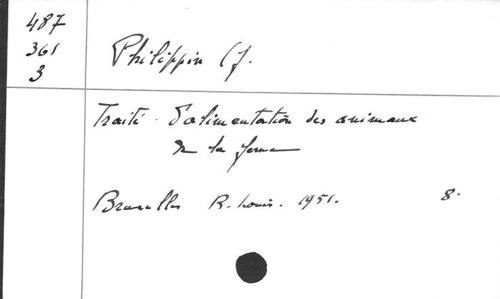 487
361
3
Philippin (J.
Traité d'alimentation des animaux
de la ferme
Bruxelles R. Louis. 1951. 8°